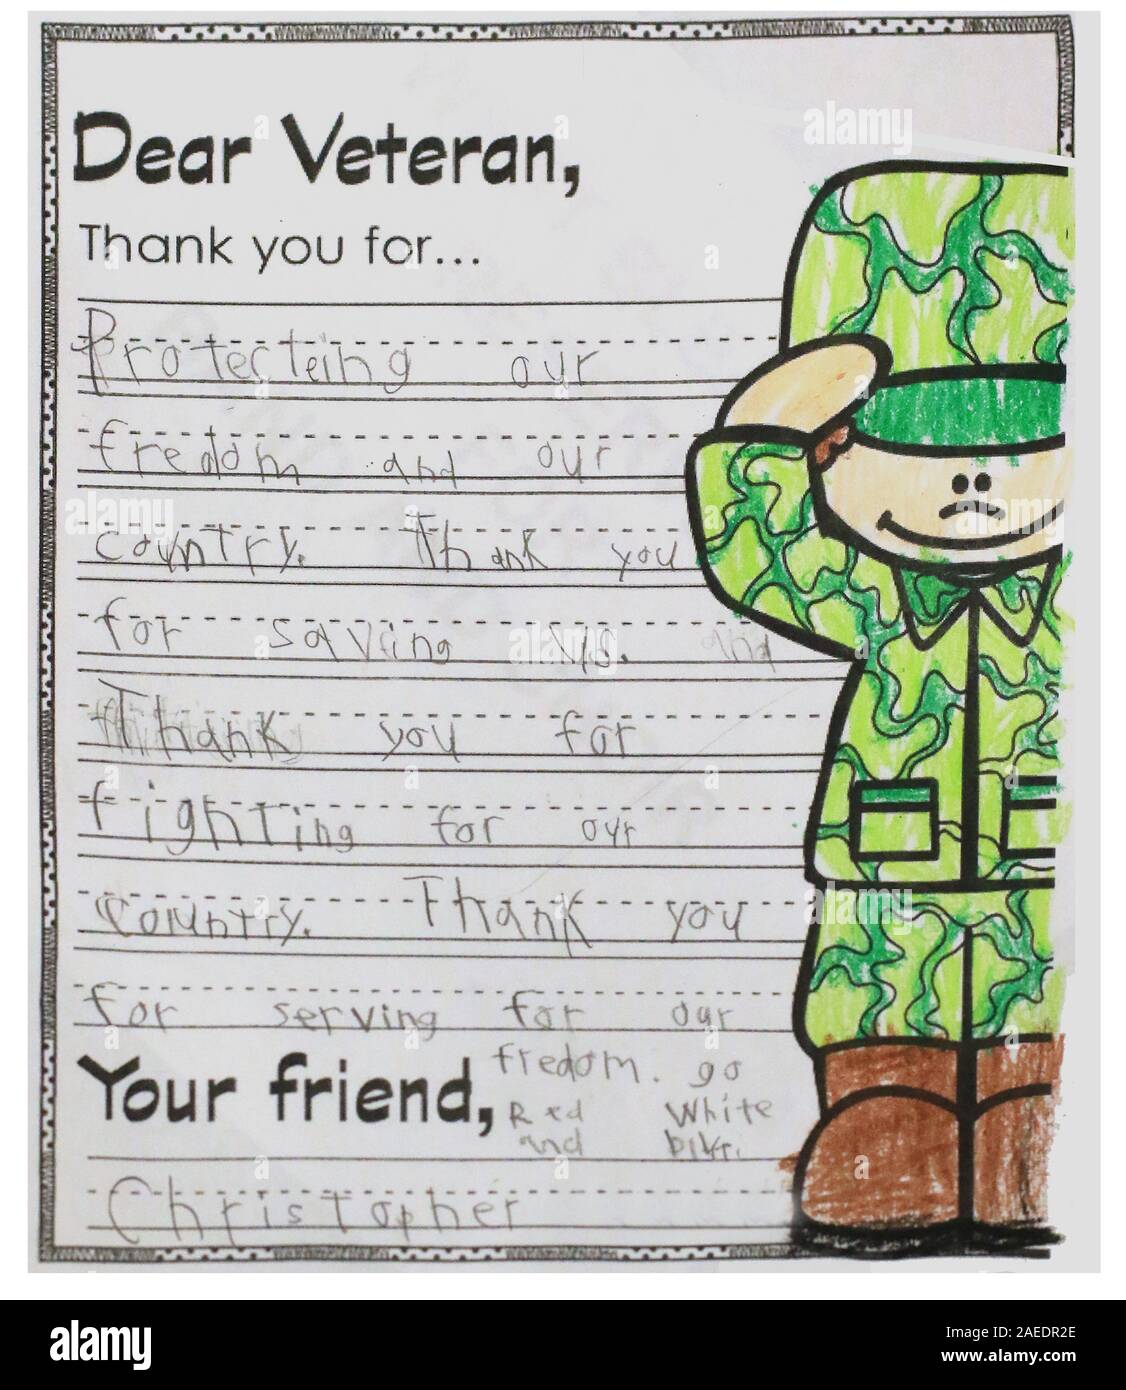 Dear Veteran,
Thank you for...
Protecteing our
fredom and our
country. Thank you
for saving us. and
Thank you for
fighting for our
country. Thank you
for serving for our
fredom. go
Red White
and
Your friend,
Christopher
alamy
Image ID: 2AEDR2E
www.alamy.com